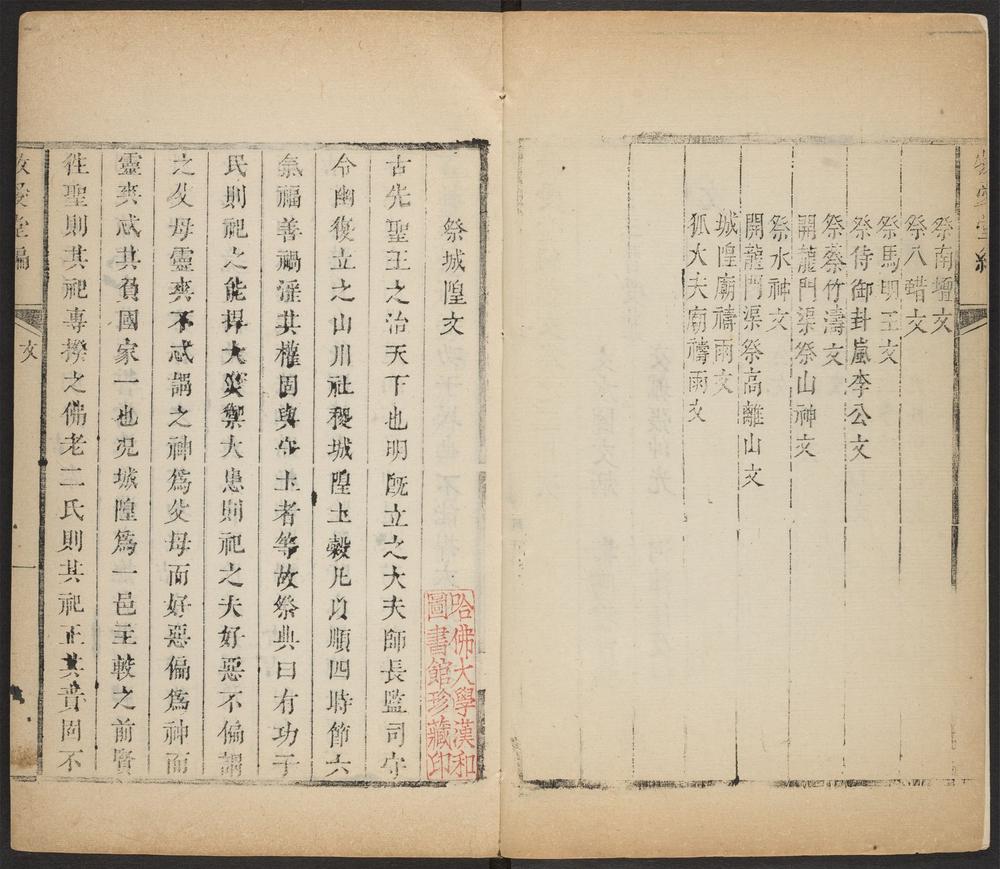 祭南壇文
祭八蜡文
祭馬明王文
祭侍御卦嵐李公文
祭蔡竹濤文
開龍門渠祭山神文
祭水神文
開龍門渠祭高離山文
城隍廟禱雨文
狐大夫廟禱雨文
祭城隍文
哈佛大學漢和
圖書館珍藏印
古先聖王之治天下也明既立之大夫師長監司守
令幽復立之山川社稷城隍土穀凡以順四時節六
氣福善禍淫其權固與守土者等故祭典曰有功于
民則祀之能捍大災禦大患則祀之夫好惡不偏謂
之父母靈爽不忒謂之神為父母而好惡偏為神而
靈爽忒其負國家一也況城隍為一邑主較之前賢
徃聖則其祀專揆之佛老二氏則其祀正其責固不
堂編
文
一